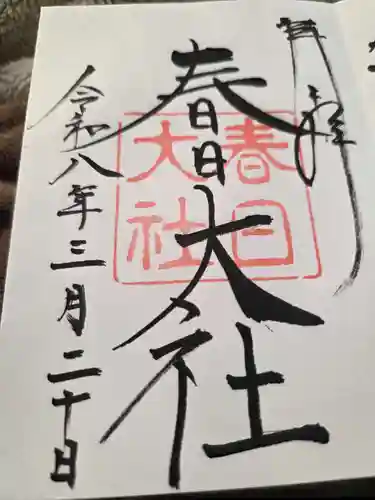 奉拝
春日大社
春日大社
令和八年三月二十日